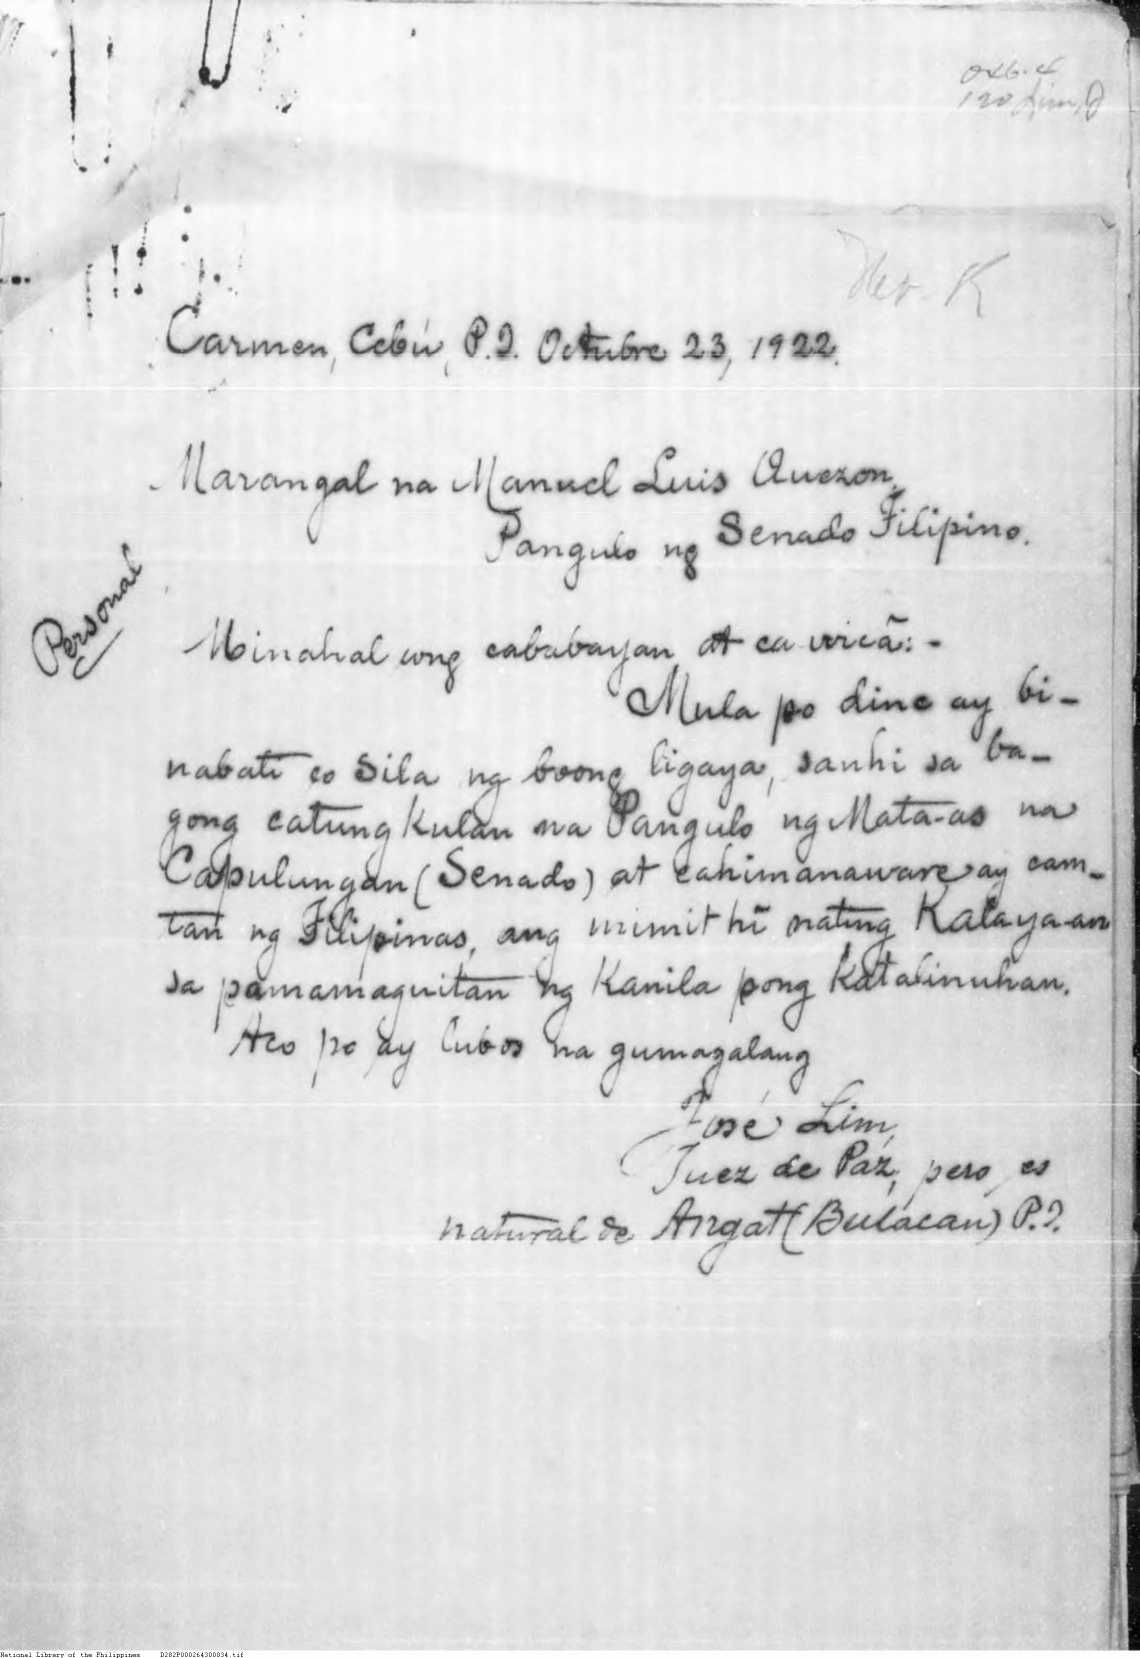 Lim, J
Rev. K
Carmen, Cebú, P.I. Octubre 23, 1922.
Marangal na Manuel Luis Quezon,
Pangulo ng Senado Filipino.
Personal
Minahal cong cababayan at ca wicã: -
Mula po dine ay bi-
nabati co Sila ng boong ligaya, sanhi sa ba-
gong catungkulan na Pangulo ng Mata-as na
Capulungan (Senado) at cahimanaware ay cam-
tan ng Filipinas, ang mimithĩ nating Kalaya-an
sa pamamaguitan ng Kanila pong Katalinuhan.
Aco po ay lubos na gumagalang
José Lim,
Juez de Paz, pero es
natural de Angat (Bulacan) P.I.
National Library of the Philippines D282P000264300834.tif